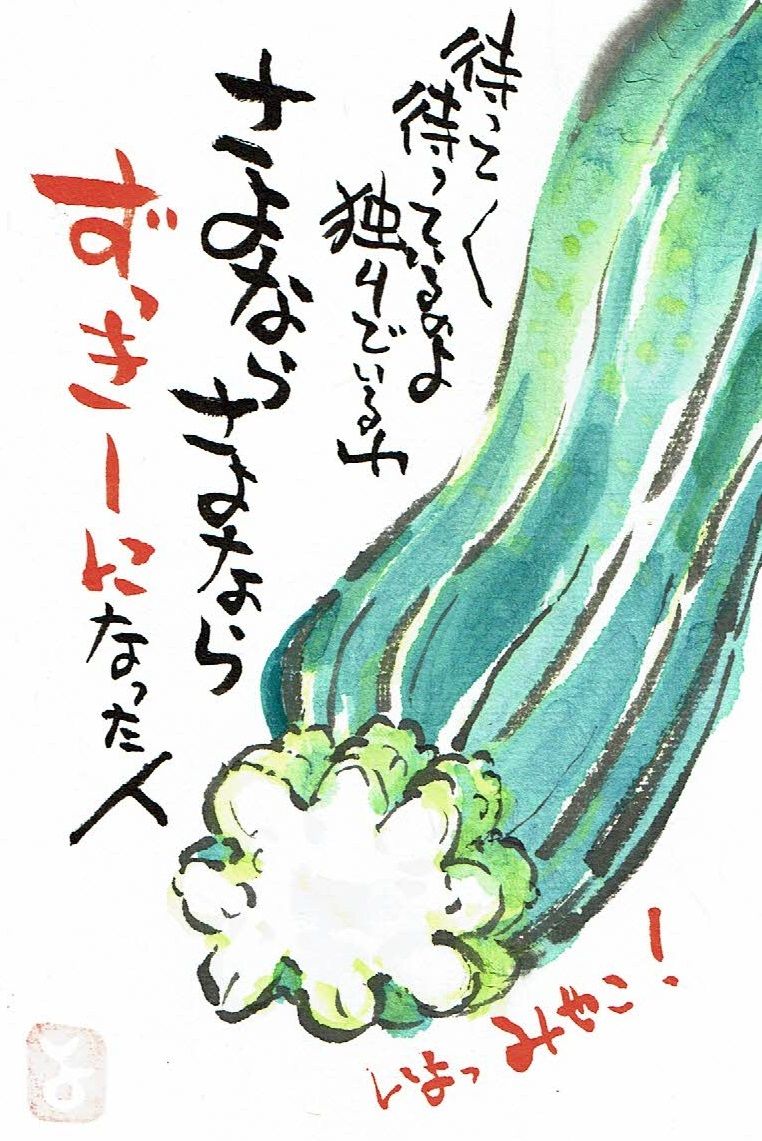 待って〱
待っているよ
独りでいるや
さよなら
さよなら
ずっきーになった人
よっ
みやこ!
と